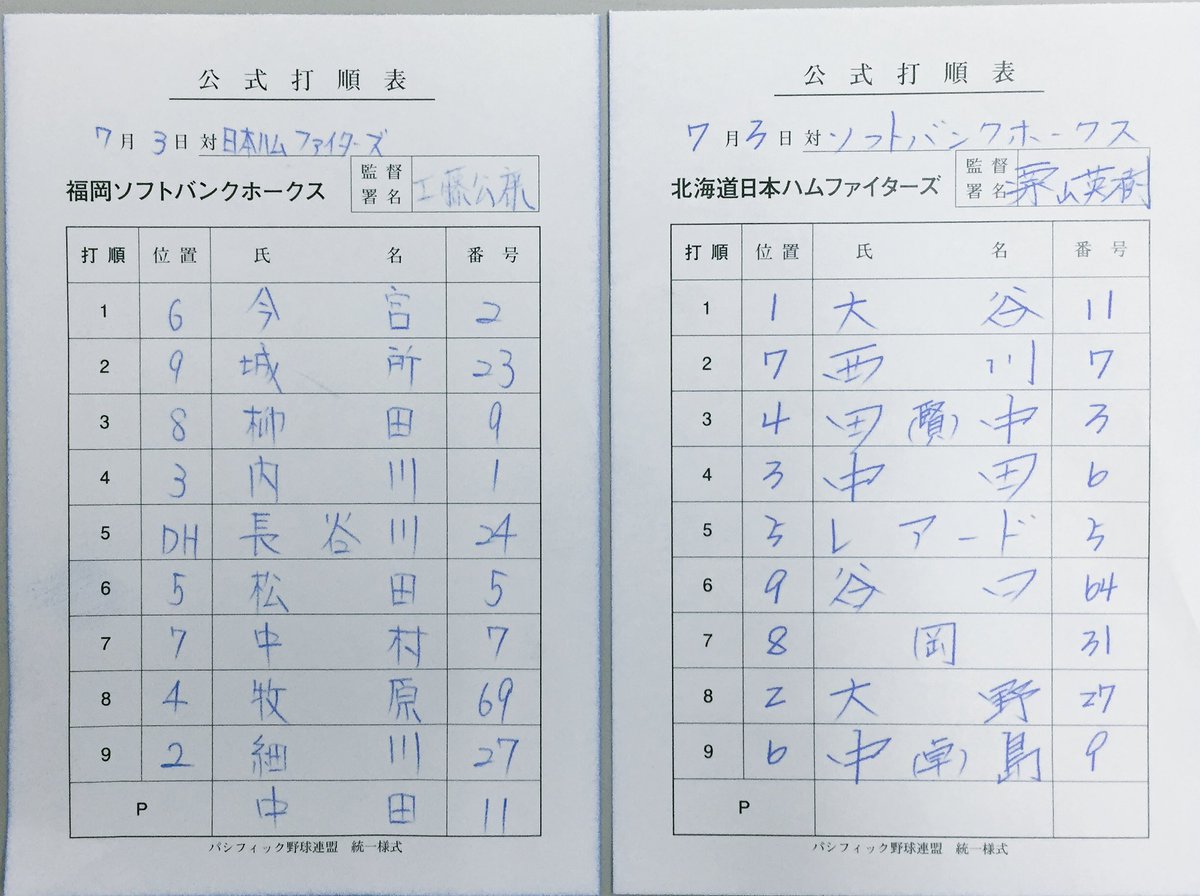 公式打順表
7月3日 対 日本ハムファイターズ
福岡ソフトバンクホークス 監督署名 工藤公康
打順 位置 氏名 番号
1 6 今宮 2
2 9 城所 23
3 8 柳田 9
4 3 内川 1
5 DH 長谷川 24
6 5 松田 5
7 7 中村 7
8 4 牧原 69
9 2 細川 27
P 中田 11
パシフィック野球連盟 統一様式
公式打順表
7月3日 対 ソフトバンクホークス
北海道日本ハムファイターズ 監督署名 栗山英樹
打順 位置 氏名 番号
1 1 大谷 11
2 7 西川 7
3 4 田(賢)中 3
4 3 中田 6
5 5 レアード 5
6 9 谷口 64
7 8 岡 31
8 2 大野 27
9 6 中(卓)島 9
P
パシフィック野球連盟 統一様式